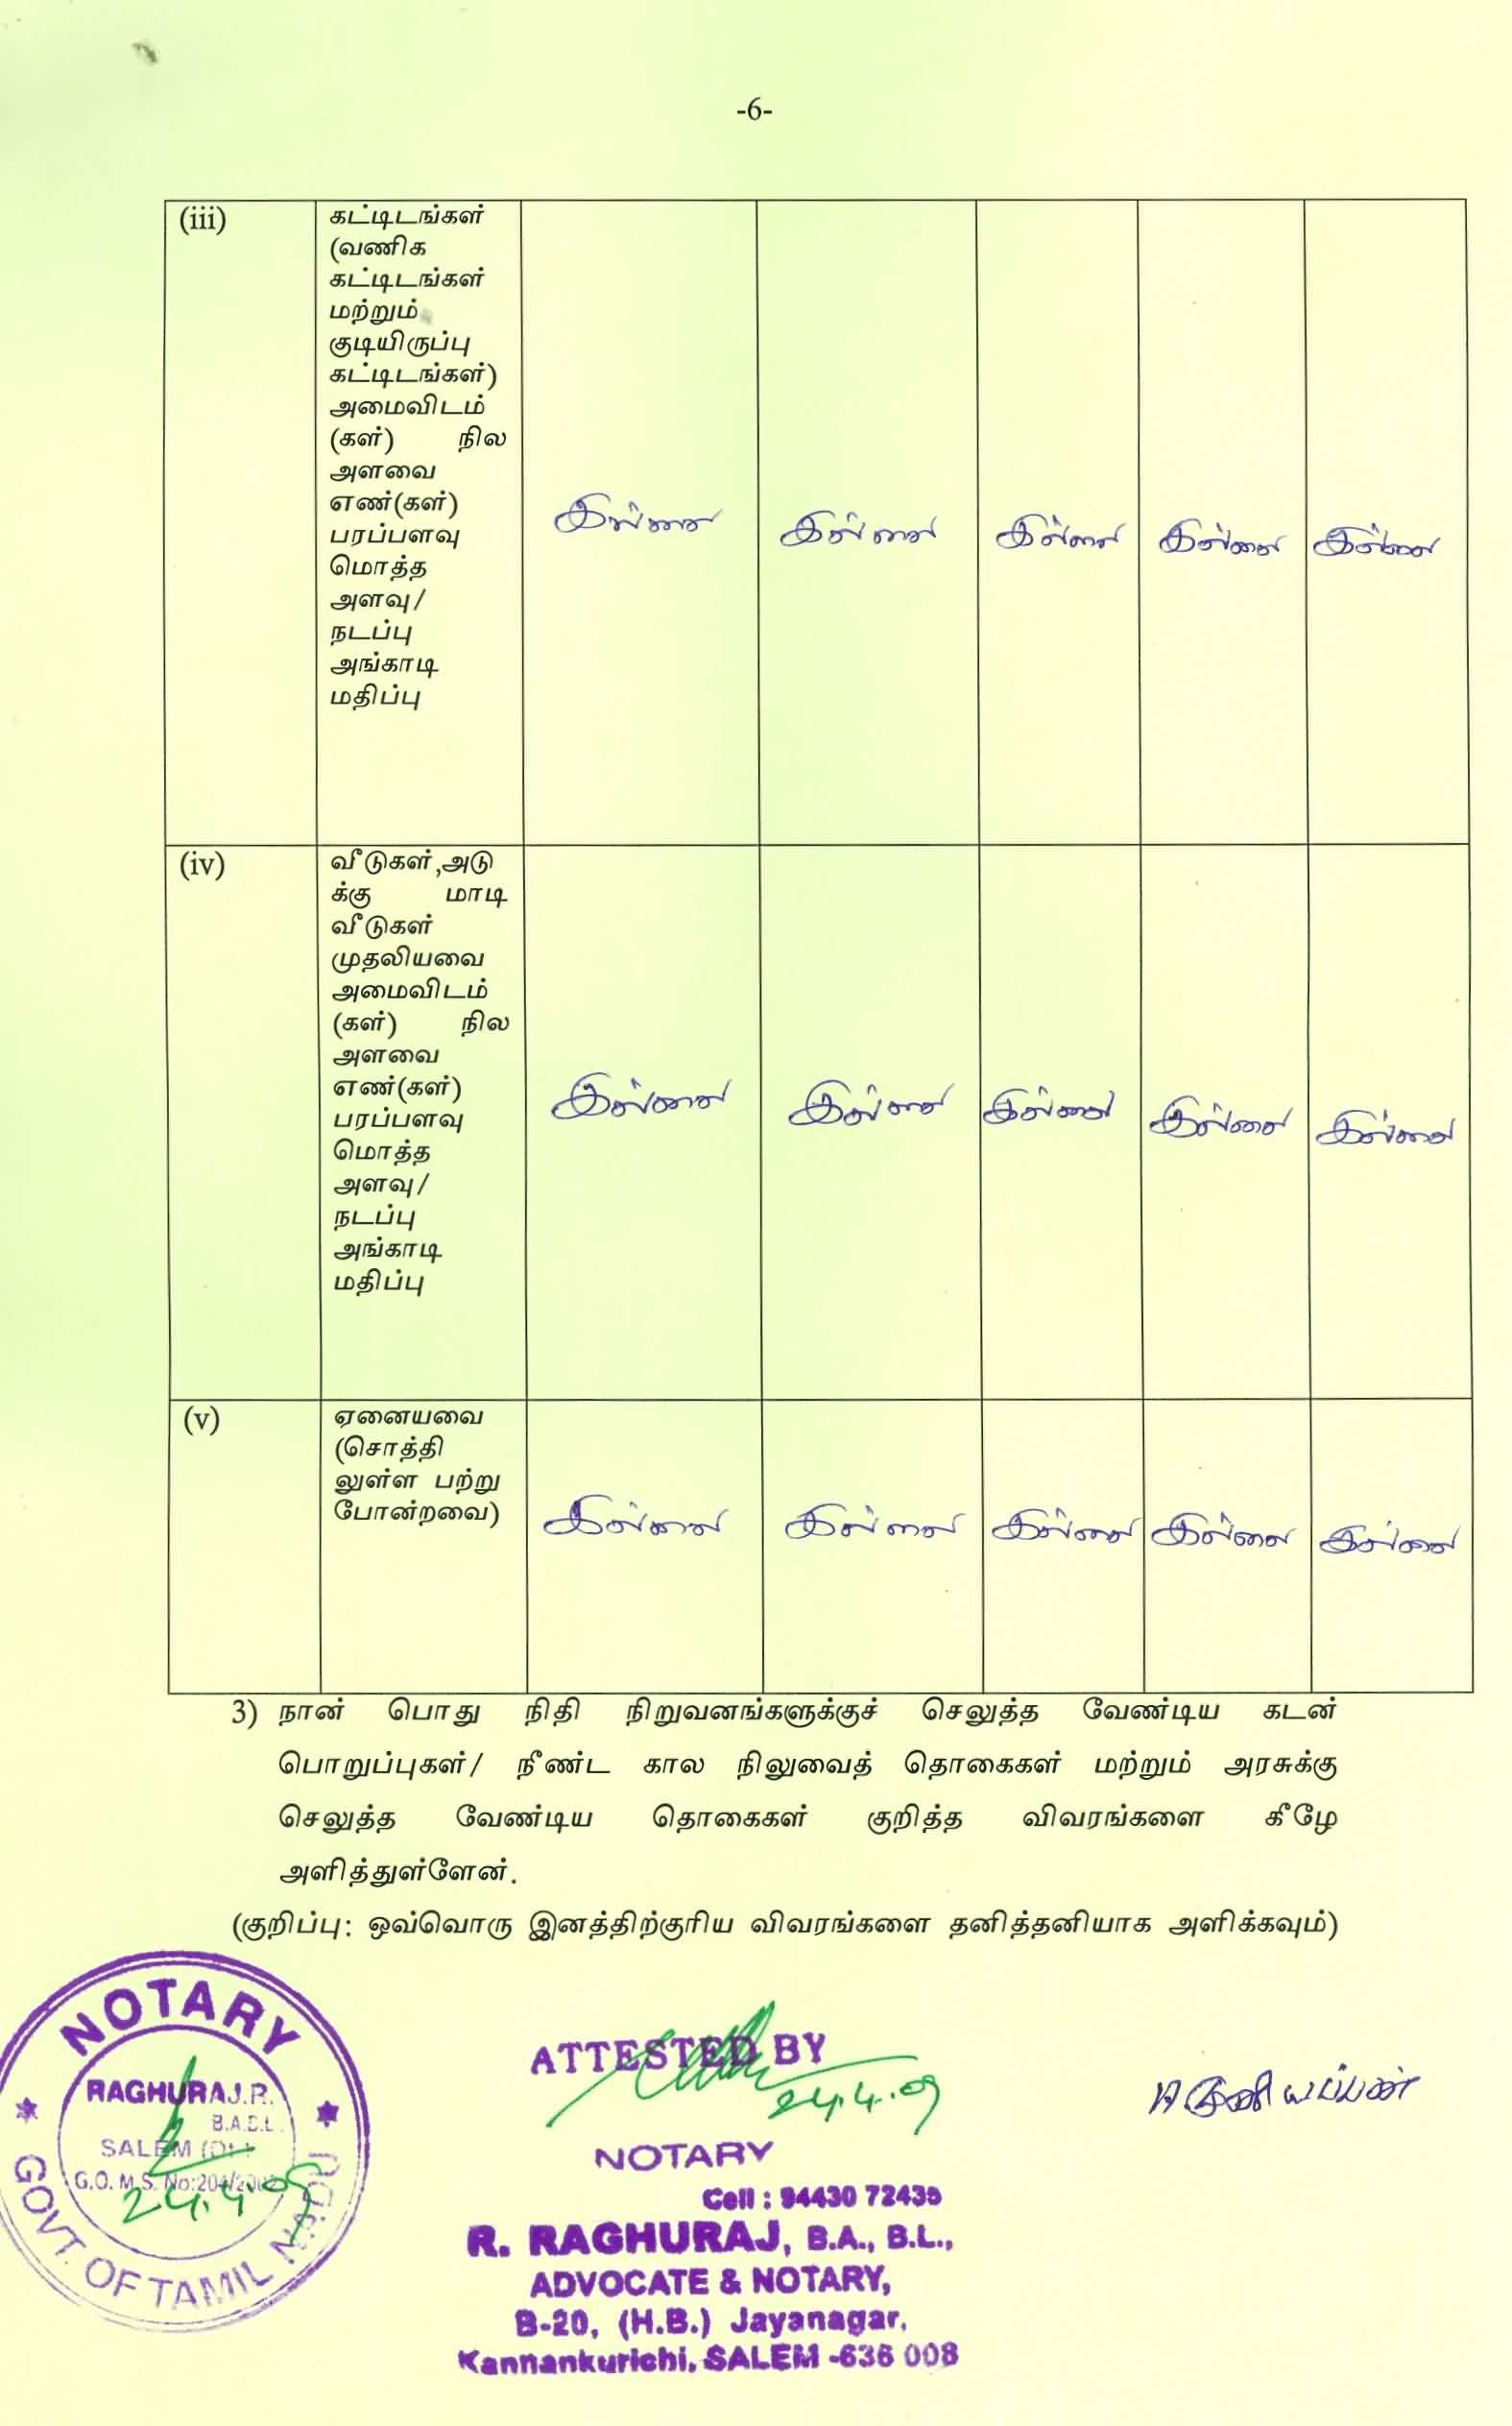 -6-
(iii)
கட்டிடங்கள்
(வணிக
கட்டிடங்கள்
மற்றும்
குடியிருப்பு
கட்டிடங்கள்)
அமைவிடம்
(கள்) நில
அளவை
எண்(கள்)
பரப்பளவு
மொத்த
அளவு/
நடப்பு
அங்காடி
மதிப்பு
இல்லை இல்லை இல்லை இல்லை இல்லை
(iv)
வீடுகள்,அடு
க்கு மாடி
வீடுகள்
முதலியவை
அமைவிடம்
(கள்) நில
அளவை
எண்(கள்)
பரப்பளவு
மொத்த
அளவு/
நடப்பு
அங்காடி
மதிப்பு
இல்லை இல்லை இல்லை இல்லை இல்லை
(v)
ஏனையவை
(சொத்தி
லுள்ள பற்று
போன்றவை)
இல்லை இல்லை இல்லை இல்லை இல்லை
3) நான் பொது நிதி நிறுவனங்களுக்குச் செலுத்த வேண்டிய கடன்
பொறுப்புகள்/ நீண்ட கால நிலுவைத் தொகைகள் மற்றும் அரசுக்கு
செலுத்த வேண்டிய தொகைகள் குறித்த விவரங்களை கீழே
அளித்துள்ளேன்.
(குறிப்பு: ஒவ்வொரு இனத்திற்குரிய விவரங்களை தனித்தனியாக அளிக்கவும்)
NOTARY
RAGHURAJ.R.
SALEM
G.O. M.S. No:204/
24.4.09
GOVT. OF TAMIL NADU
ATTESTED BY
24.4.09
NOTARY
Cell : 94430 72435
R. RAGHURAJ, B.A., B.L.,
ADVOCATE & NOTARY,
B-20, (H.B.) Jayanagar,
Kannankurichi, SALEM -636 008